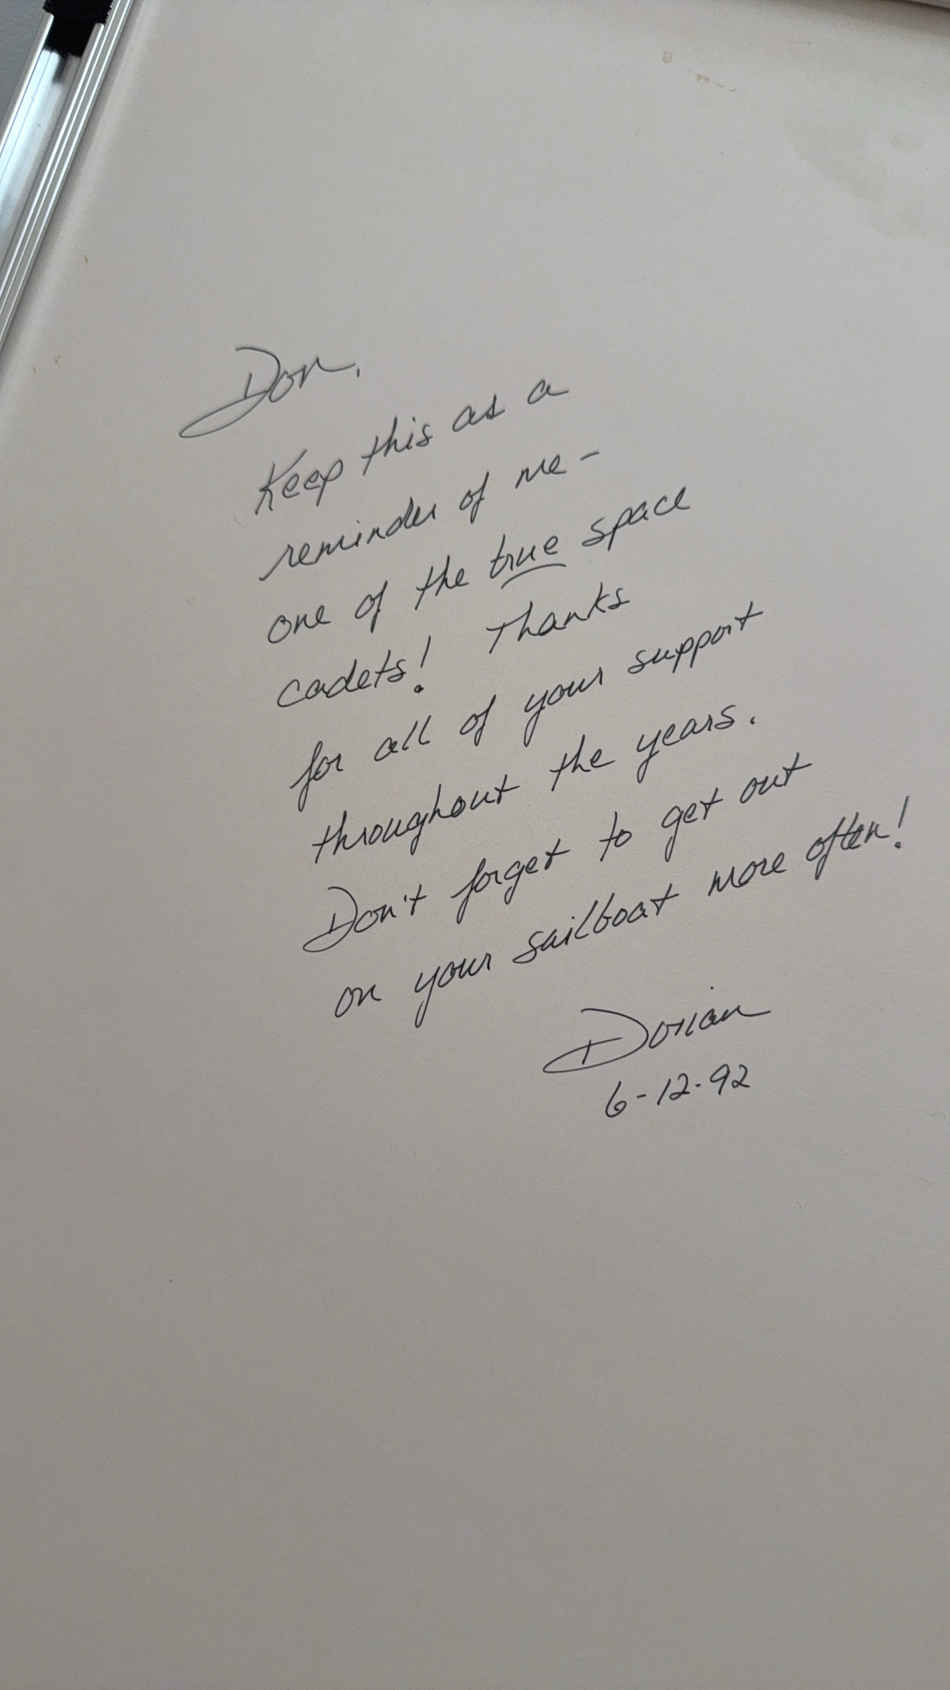 Don,
Keep this as a
reminder of me -
one of the true space
cadets! Thanks
for all of your support
throughout the years.
Don't forget to get out
on your sailboat more often!
Dorian
6-12-92